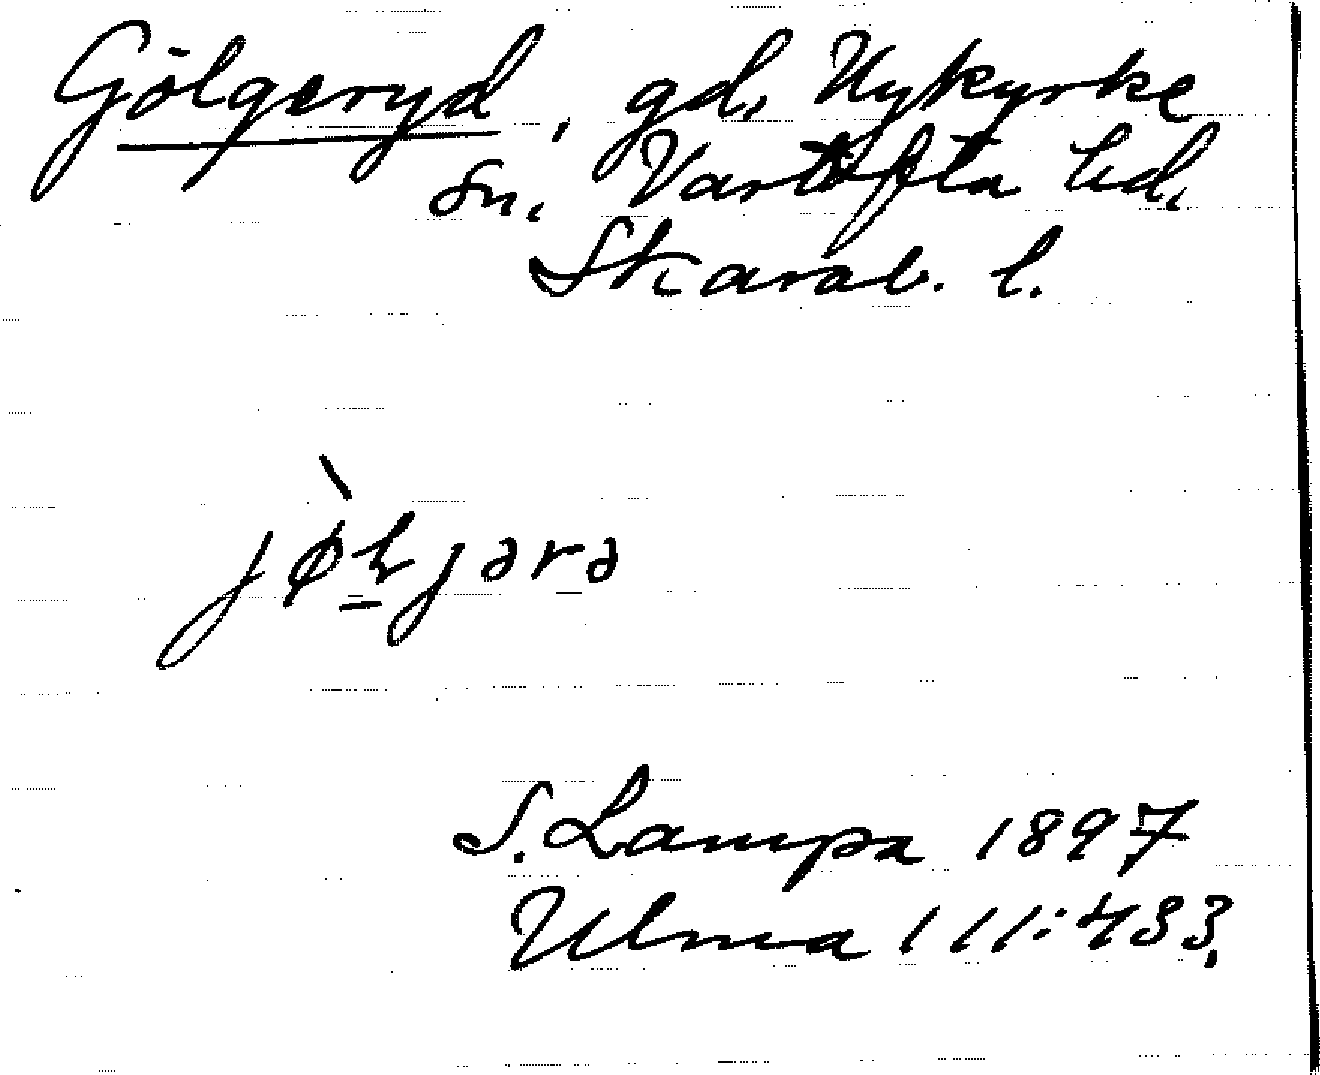 Gölgeryd, gd, Nykyrke
sn. Vartofta hd,
Skarab. l.
S. Lampa 1897
Ulma 111:433.